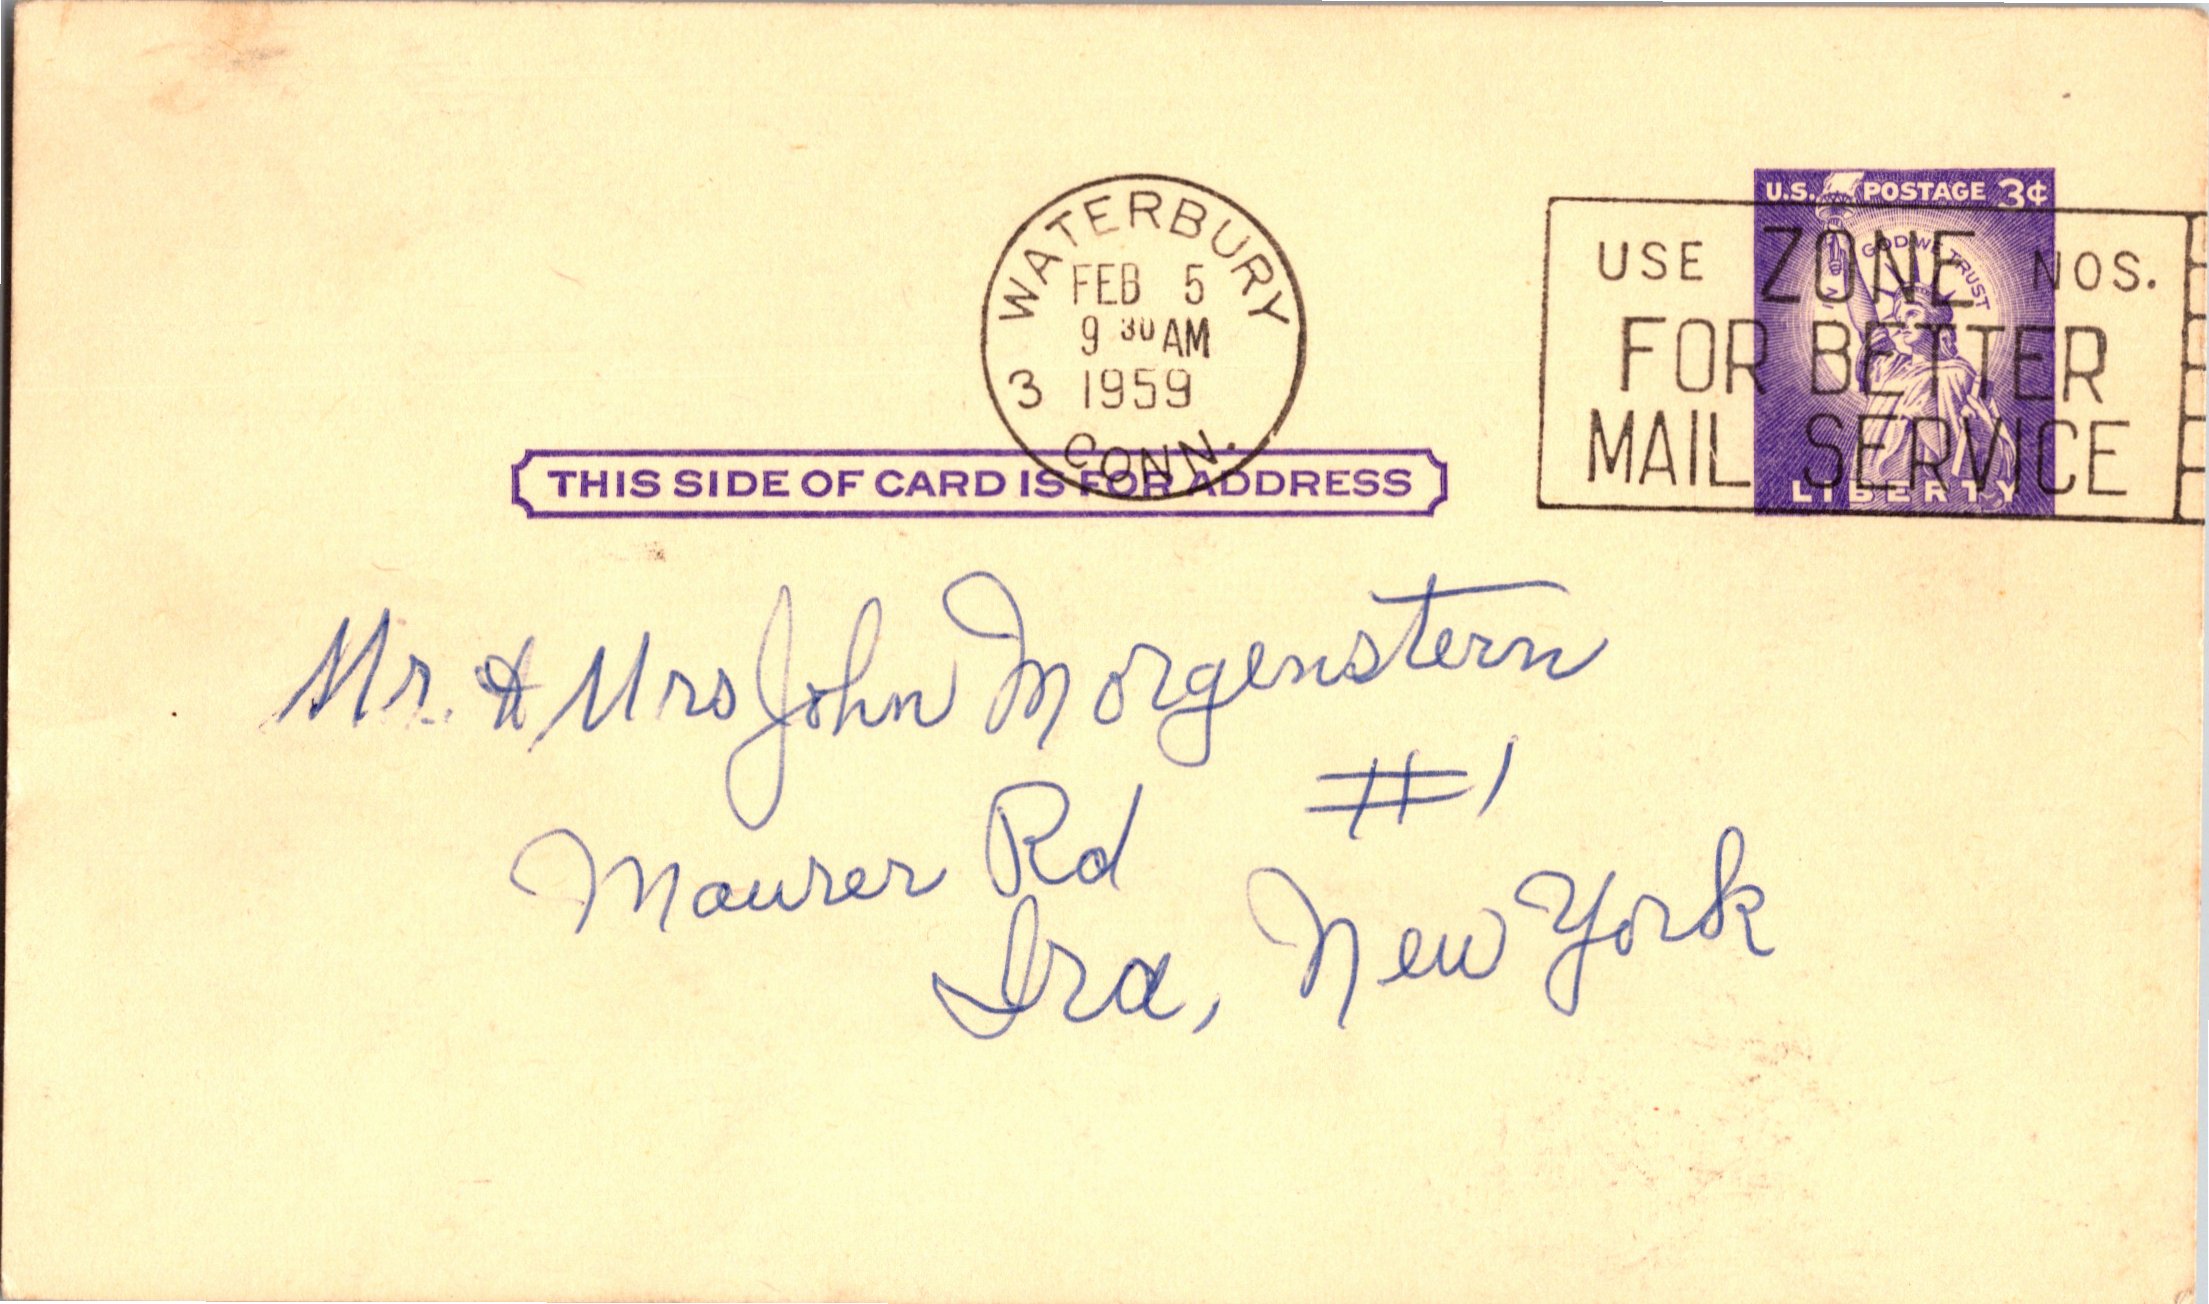 WATERBURY
FEB 5
9 30 AM
3 1959
CONN.
U.S. POSTAGE 3¢
IN GOD WE TRUST
LIBERTY
USE ZONE NOS.
FOR BETTER
MAIL SERVICE
THIS SIDE OF CARD IS FOR ADDRESS
Mr. & Mrs John Morgenstern
Maurer Rd #1
Ira, New York